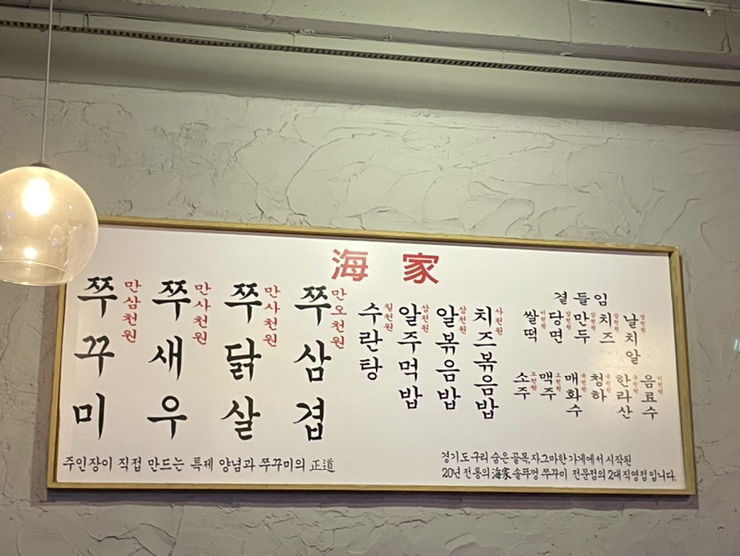 海家
쭈꾸미 만삼천원
쭈새우 만사천원
쭈닭살 만사천원
쭈삼겹 만오천원
수란탕 칠천원
알주먹밥 삼천원
알볶음밥 삼천원
치즈볶음밥 사천원
곁들임
쌀떡
당면
만두
치즈
날치알
소주
맥주
매화수
청하
한라산
음료수
주인장이 직접 만드는 특제 양념과 쭈꾸미의 正道
경기도 구리 숨은골목, 자그마한 가게에서 시작된
20년 전통의 海家 솥뚜껑 쭈꾸미 전문점의 2대 직영점입니다.